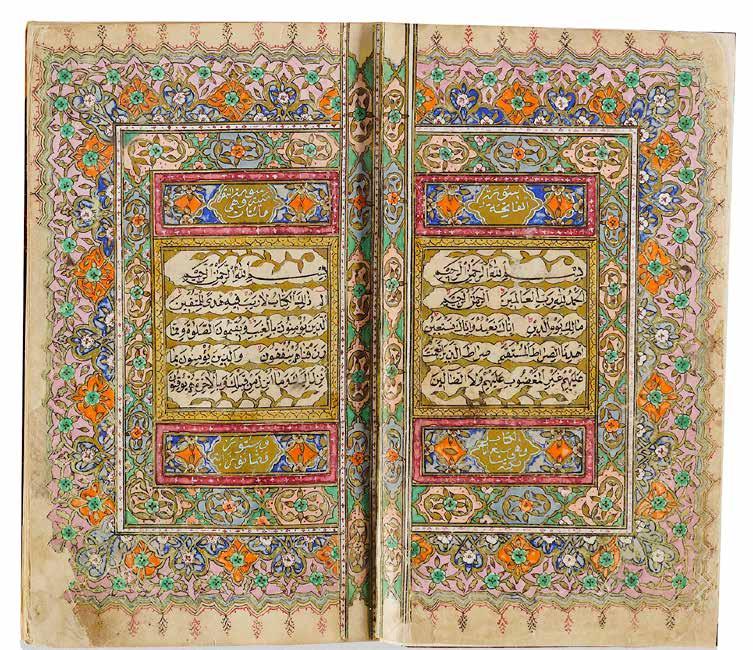 سورة
الفاتحة
بسم الله الرحمن الرحيم
الحمد لله رب العالمين الرحمن الرحيم
مالك يوم الدين اياك نعبد واياك نستعين
اهدنا الصراط المستقيم صراط الذين انعمت
عليهم غير المغضوب عليهم ولا الضالين
الكتاب
سورة البقرة
مائتان وهي
بسم الله الرحمن الرحيم
الم ذلك الكتاب لا ريب فيه هدى للمتقين
الذين يؤمنون بالغيب ويقيمون الصلوة ومما
رزقناهم ينفقون والذين يؤمنون بما
انزل اليك وما انزل من قبلك وبالاخرة هم يوقنون